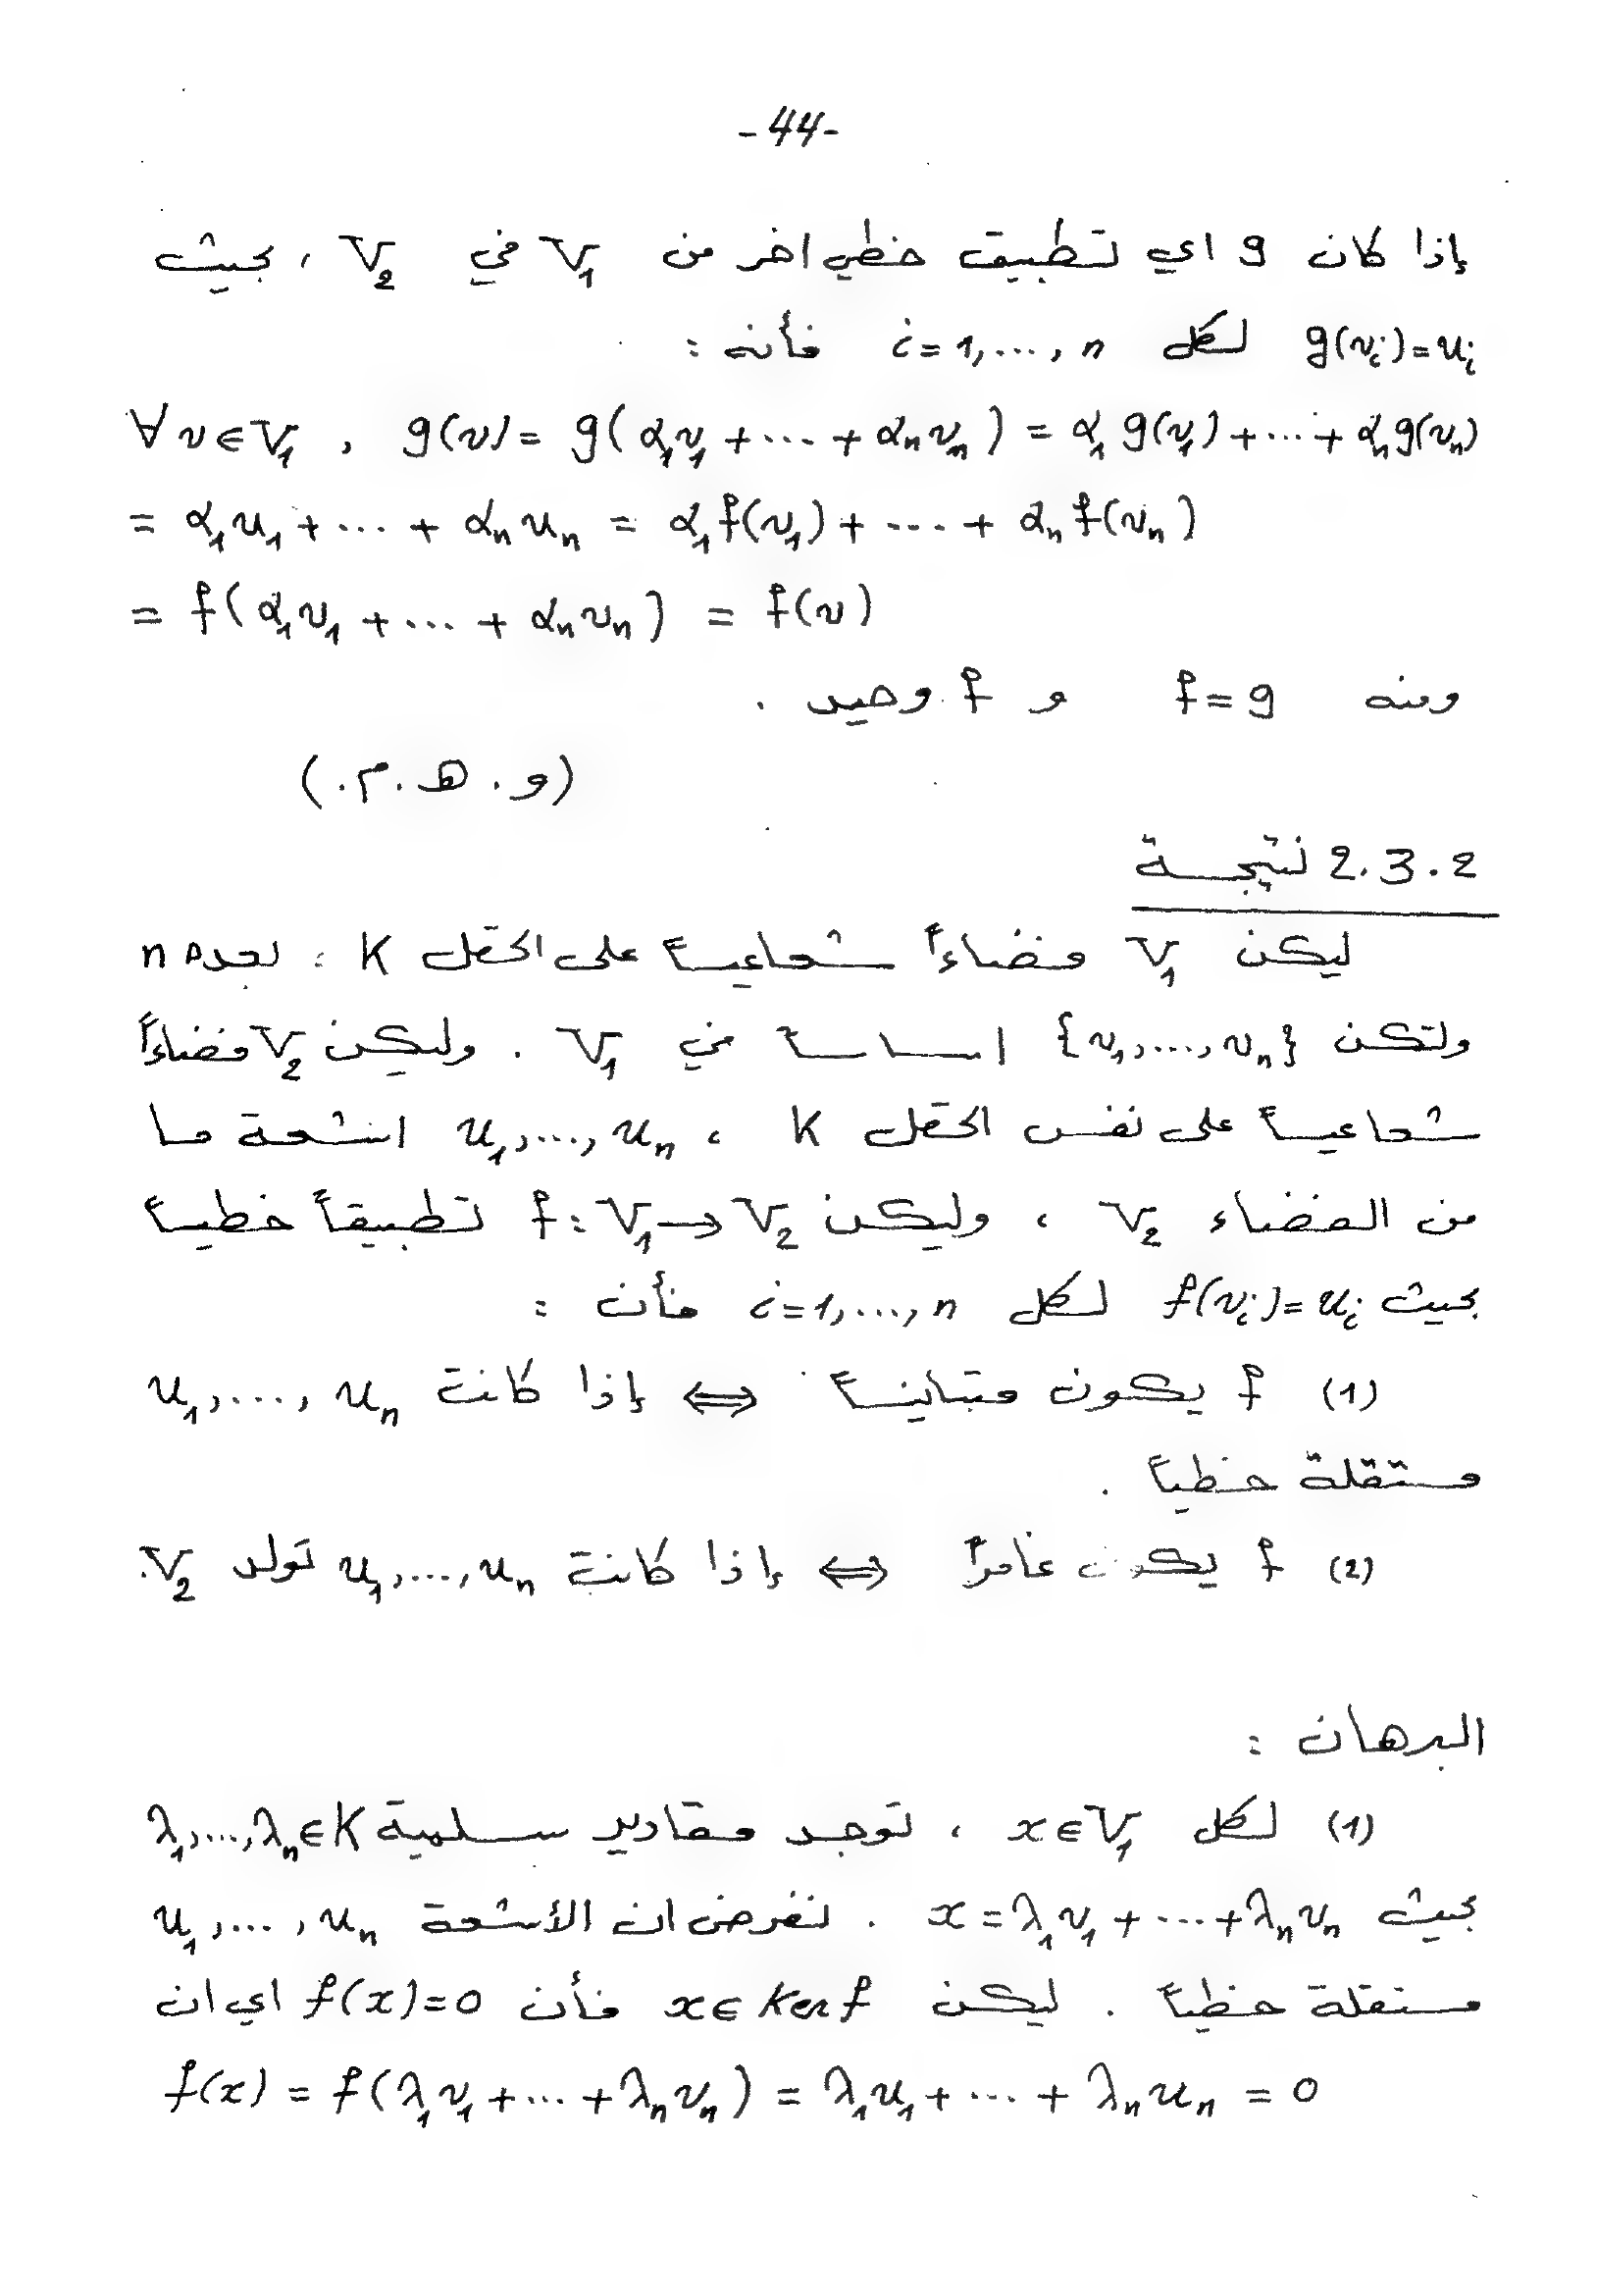 -44-
إذا كان g اي تطبيق خطي اخر من V₁ في V₂ ، بحيث
g(vᵢ)=uᵢ لكل i=1,...,n فأنه :
∀ v ∈ V₁ , g(v) = g(α₁v₁ + ... + αₙvₙ) = α₁g(v₁) + ... + αₙg(vₙ)
= α₁u₁ + ... + αₙuₙ = α₁f(v₁) + ... + αₙf(vₙ)
= f(α₁v₁ + ... + αₙvₙ) = f(v)
ومنه f=g و f وحيد .
(و . هـ . م .)
2.3.2 نتيجة
ليكن V₁ فضاءاً شعاعياً على الحقل K ، لعده n
ولتكن {v₁,...,vₙ} اساساً في V₁ . وليكن V₂ فضاءاً
شعاعياً على نفس الحقل K ، u₁,...,uₙ اشعة ما
من الفضاء V₂ ، وليكن f:V₁→V₂ تطبيقاً خطياً
بحيث f(vᵢ)=uᵢ لكل i=1,...,n فأن :
(1) f يكون متبايناً ⟺ إذا كانت u₁,...,uₙ
مستقلة خطياً .
(2) f يكون غامراً ⟺ إذا كانت u₁,...,uₙ تولد V₂.
البرهان :
(1) لكل x∈V₁ ، توجد مقادير سلمية λ₁,...,λₙ∈K
بحيث x=λ₁v₁+...+λₙvₙ . لنفرض ان الأشعة u₁,...,uₙ
مستقلة خطياً . ليكن x∈Ker f فأن f(x)=0 اي ان
f(x) = f(λ₁v₁+...+λₙvₙ) = λ₁u₁+...+λₙuₙ = 0